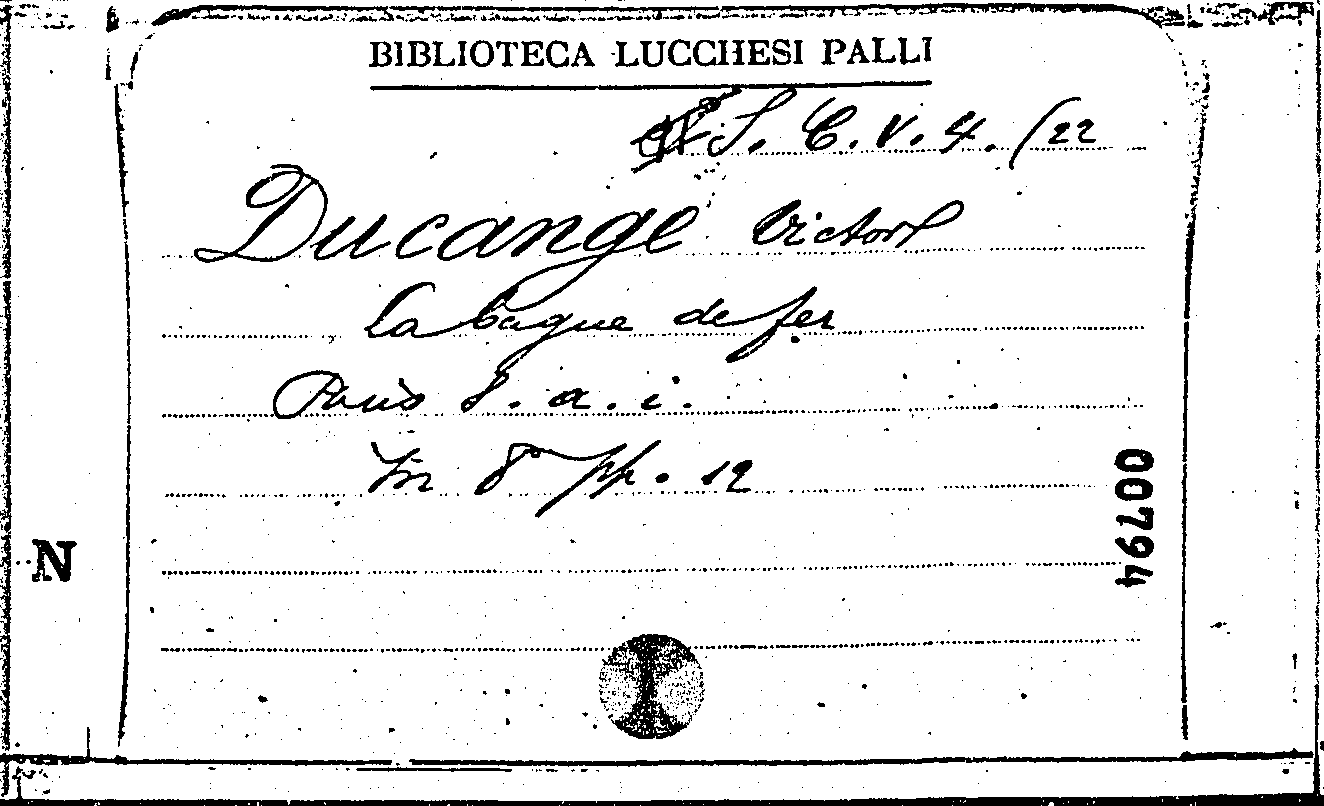 BIBLIOTECA LUCCHESI PALLI
S. C. V. 4. (22
Ducange Victor
La bague de fer
Paris S. a. i.
in 8° pp. 12
00794
N